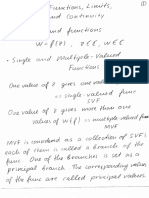 Functions, Limits, ①
and Continuity
and functions
W = f(z), z ∈ ℂ, w ∈ ℂ
• Single and Multiple-Valued
Functions
One value of z gives one value
⇒ single valued func
SVF
One value of z gives more than one
values of W(f) ⇒ multiple valued func
MVF
MVF is considered as a collection of SVFs
each of them is called a branch of the
func. One of the branches is set as a
principal branch. The corresponding values
of the func are called principal values.